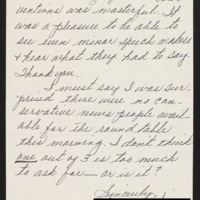 ventions was masterful. It
was a pleasure to be able to
see even minor speech makers
& hear what they had to say.
Thank you.
I must say I was sur-
prised there were no con-
servative news people avail-
able for the round table
this morning. I don't think
one out of 3 is too much
to ask for — or is it?
Sincerely,